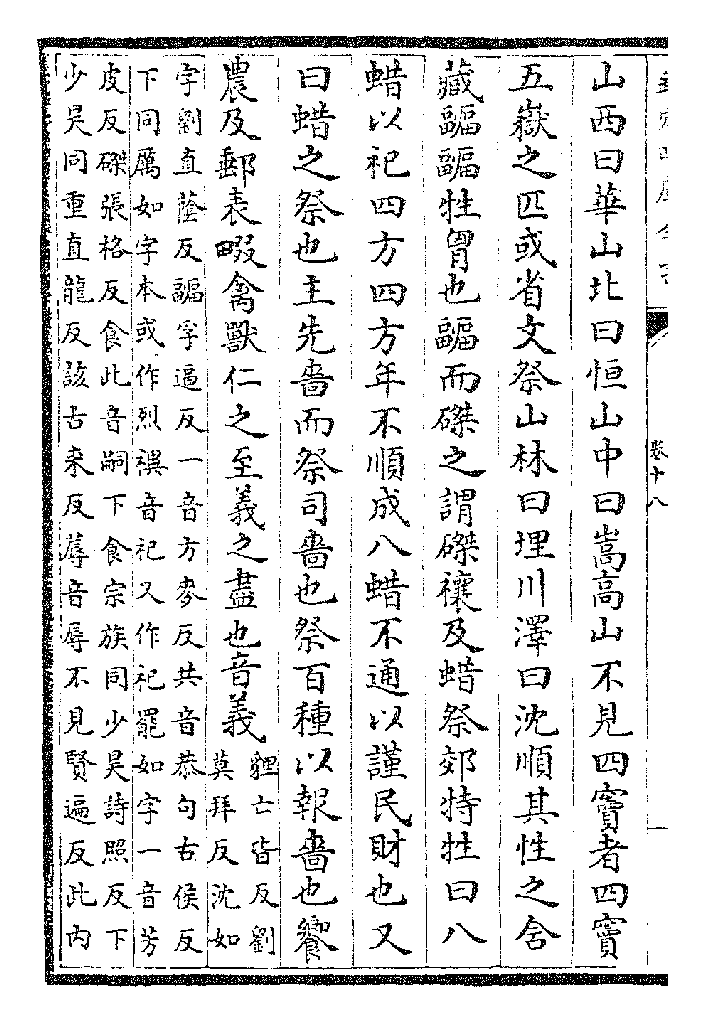 卷十八
山西曰華山北曰恒山中曰嵩高山不見四竇者四竇
五嶽之匹或省文祭山林曰埋川澤曰沈順其性之含
藏疈疈牲胷也疈而磔之謂磔禳及蜡祭郊特牲曰八
蜡以祀四方四方年不順成八蜡不通以謹民財也又
曰蜡之祭也主先嗇而祭司嗇也祭百種以報嗇也饗
農及郵表畷禽獸仁之至義之盡也音義
貍亡皆反劉
莫拜反沈如
字劉直蔭反疈字逼反一音方麥反共音恭句古侯反
下同厲如字本或作烈禩音祀又作祀罷如字一音芳
皮反磔張格反食此音嗣下食宗族同少昊詩照反下
少昊同重直龍反該古来反蓐音辱不見賢遍反此内